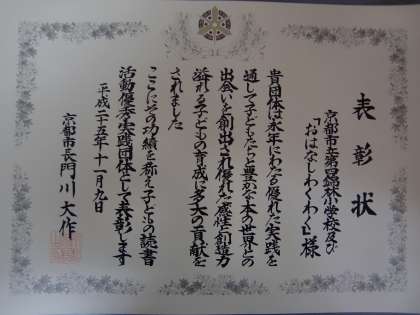 表彰状
京都市立第四錦林小学校及び
「おはなしわくわく」様
貴団体は永年にわたる優れた実践を
通して子どもたちと豊かな本の世界との
出会いを創出され優れた感性と創造力
溢れる子どもの育成に多大の貢献を
されました
ここにその功績を称え子どもの読書
活動優秀実践団体として表彰します
平成二十五年十一月九日
京都市長門川大作